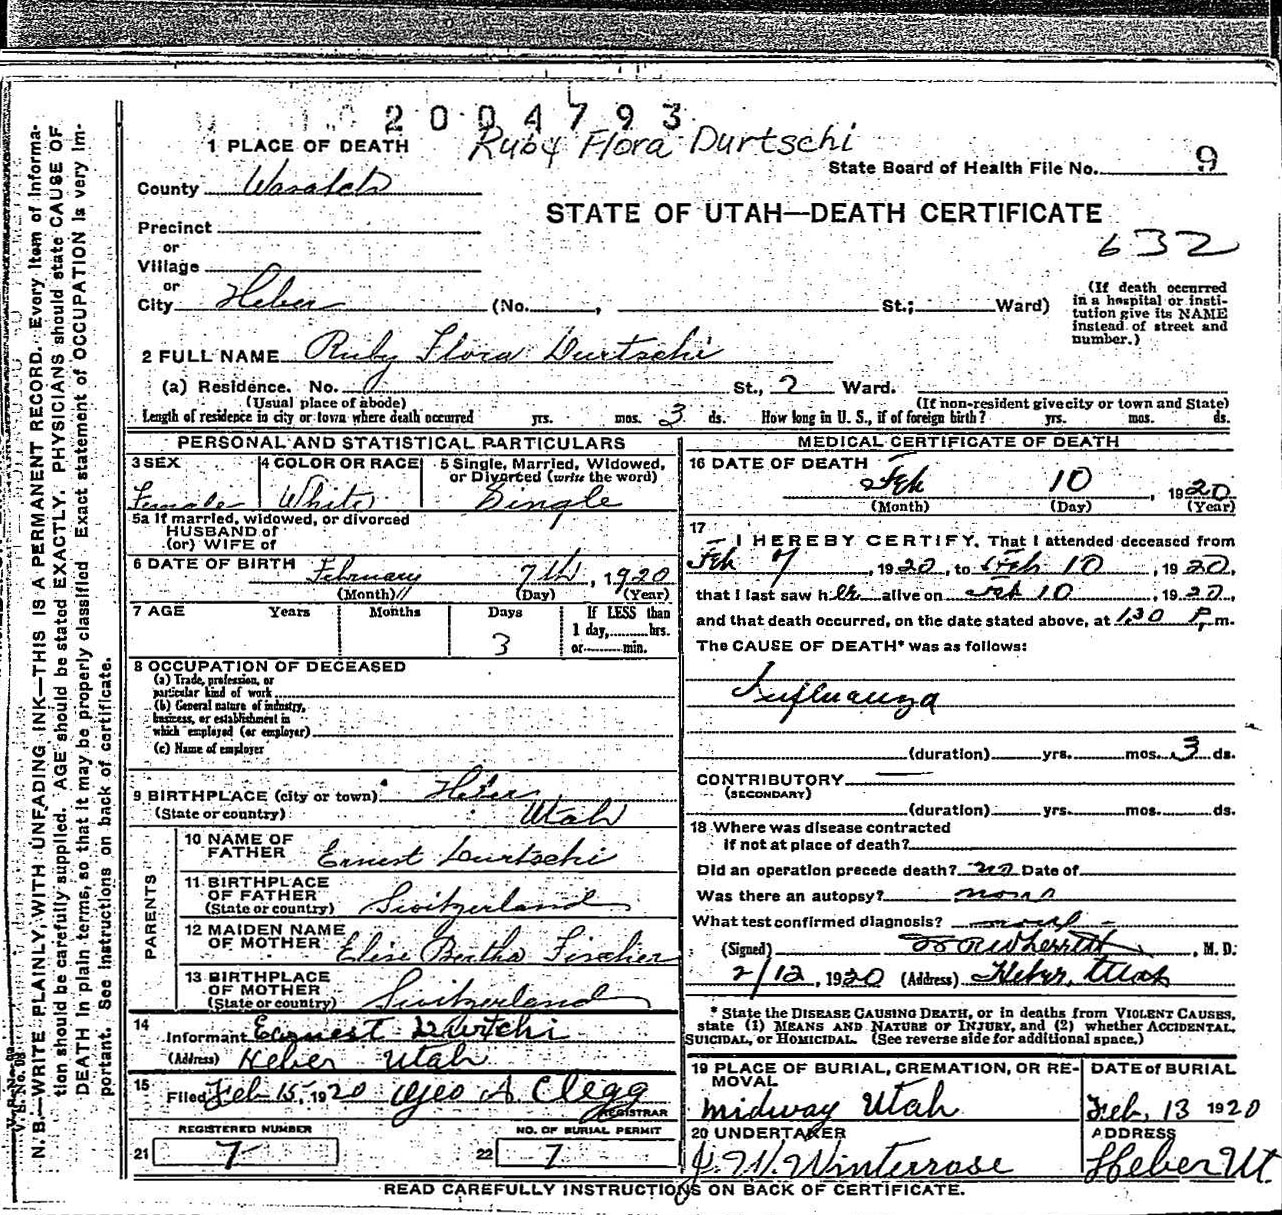 2004793
1 PLACE OF DEATH Ruby Flora Durtschi
State Board of Health File No. 9
County Wasatch
STATE OF UTAH—DEATH CERTIFICATE
Precinct
632
or
Village
or
City Heber (No. , St.; Ward)
(If death occurred in a hospital or insti-
tution give its NAME
instead of street and
number.)
2 FULL NAME Ruby Flora Durtschi
(a) Residence. No. St., 2 Ward.
(Usual place of abode) (If non-resident give city or town and State)
Length of residence in city or town where death occurred yrs. mos. 3 ds. How long in U. S., if of foreign birth? yrs. mos. ds.
PERSONAL AND STATISTICAL PARTICULARS
3 SEX 4 COLOR OR RACE 5 Single, Married, Widowed,
or Divorced (write the word)
Female White Single
5a If married, widowed, or divorced
HUSBAND of
(or) WIFE of
6 DATE OF BIRTH February 7th, 1920
(Month) (Day) (Year)
7 AGE Years Months Days If LESS than
1 day, hrs.
3 or min.
8 OCCUPATION OF DECEASED
(a) Trade, profession, or
particular kind of work
(b) General nature of industry,
business, or establishment in
which employed (or employer)
(c) Name of employer
9 BIRTHPLACE (city or town) Heber
(State or country) Utah
PARENTS
10 NAME OF
FATHER Ernest Durtschi
11 BIRTHPLACE
OF FATHER
(State or country) Switzerland
12 MAIDEN NAME
OF MOTHER Elise Bertha Fischer
13 BIRTHPLACE
OF MOTHER
(State or country) Switzerland
14
Informant Earnest Durtchi
(Address) Heber Utah
15
Filed Feb 15, 1920 Geo A Clegg
REGISTRAR
REGISTERED NUMBER NO. OF BURIAL PERMIT
21 7 22 7
MEDICAL CERTIFICATE OF DEATH
16 DATE OF DEATH
Feb 10, 1920
(Month) (Day) (Year)
17
I HEREBY CERTIFY, That I attended deceased from
Feb 7, 1920, to Feb 10, 1920,
that I last saw her alive on Feb 10, 1920,
and that death occurred, on the date stated above, at 1.30 P. m.
The CAUSE OF DEATH* was as follows:
Influanza
(duration) yrs. mos. 3 ds.
CONTRIBUTORY
(SECONDARY)
(duration) yrs. mos. ds.
18 Where was disease contracted
if not at place of death?
Did an operation precede death? no Date of
Was there an autopsy?
What test confirmed diagnosis?
(Signed) , M. D.
2/12, 1920 (Address) Heber, Utah
* State the DISEASE CAUSING DEATH, or in deaths from VIOLENT CAUSES,
state (1) MEANS AND NATURE OF INJURY, and (2) whether ACCIDENTAL,
SUICIDAL, or HOMICIDAL. (See reverse side for additional space.)
19 PLACE OF BURIAL, CREMATION, OR RE-
MOVAL
Midway Utah
DATE of BURIAL
Feb, 13 1920
20 UNDERTAKER
J. W. Winterrose
ADDRESS
Heber Ut.
READ CAREFULLY INSTRUCTIONS ON BACK OF CERTIFICATE.
N. B.—WRITE PLAINLY, WITH UNFADING INK—THIS IS A PERMANENT RECORD. Every item of informa-
tion should be carefully supplied. AGE should be stated EXACTLY. PHYSICIANS should state CAUSE OF
DEATH in plain terms, so that it may be properly classified. Exact statement of OCCUPATION is very im-
portant. See instructions on back of certificate.